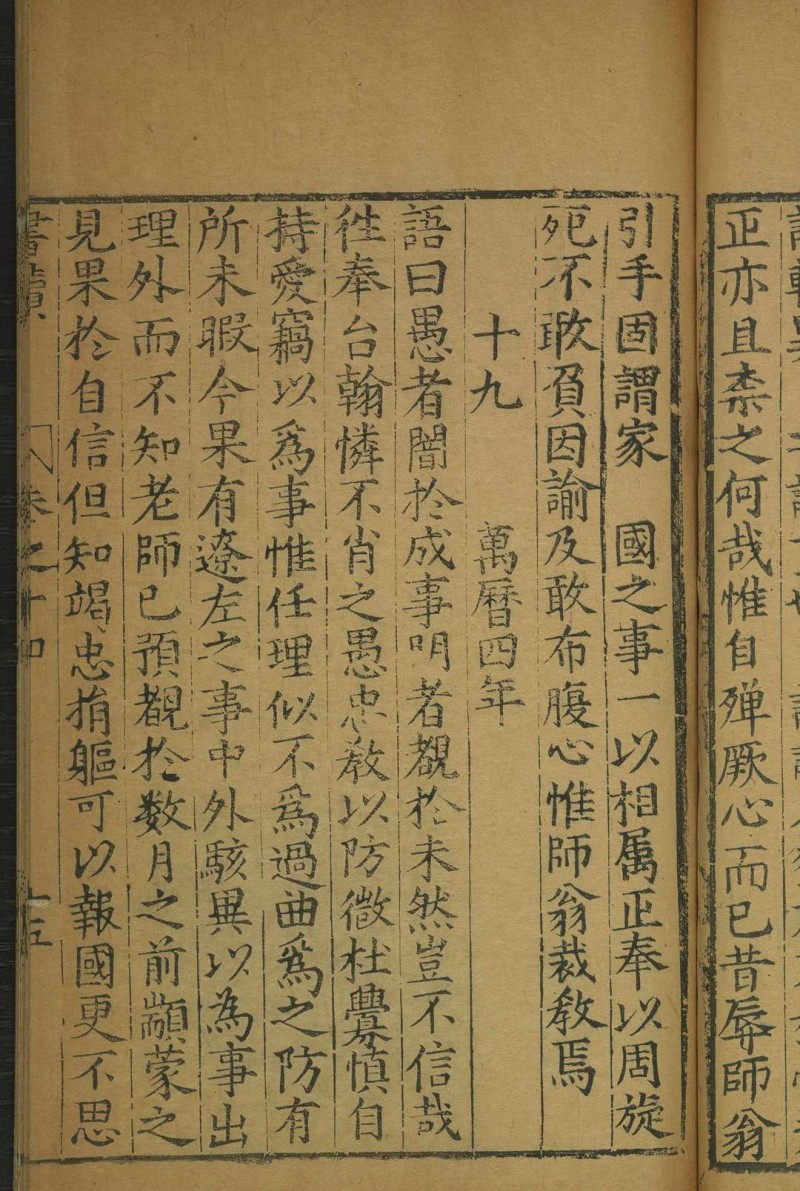 正亦且柰之何哉惟自殫厥心而已昔辱師翁
引手固謂家　國之事一以相属正奉以周旋
死不敢負因諭及敢布腹心惟師翁裁敎焉
十九　萬曆四年
語曰愚者闇於成事明者覩於未然豈不信哉
徃奉台翰憐不肖之愚忠敎以防微杜釁慎自
持愛竊以爲事惟任理似不爲過曲爲之防有
所未暇今果有遼左之事中外駭異以為事出
理外而不知老師已預覩於数月之前顓蒙之
見果於自信但知竭忠捐軀可以報國更不思
書牘　卷之十四　十五